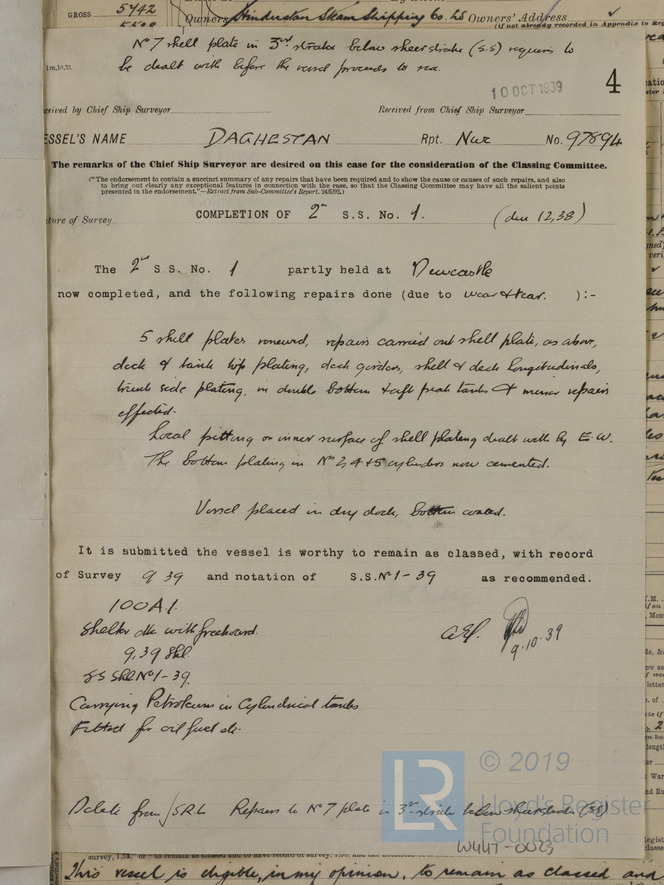 GROSS 5742
Owners Hindustan Steam Shipping Co. Ld Owners' Address
(if not already recorded in Appendix to Re
No 7 shell plate in 3rd strake below sheerstrake (S.S) requires to
be dealt with before the vessel proceeds to sea.
1m,10,33.
10 OCT 1939
4
ceived by Chief Ship Surveyor
Received from Chief Ship Surveyor
ESSEL'S NAME DAGHESTAN Rpt. Nwc No. 97894
The remarks of the Chief Ship Surveyor are desired on this case for the consideration of the Classing Committee.
("The endorsement to contain a succinct summary of any repairs that have been required and to show the cause or causes of such repairs, and also
to bring out clearly any exceptional features in connection with the case, so that the Classing Committee may have all the salient points
presented in the endorsement."—Extract from Sub-Committee's Report,
ture of Survey COMPLETION OF 2nd S.S. No. 1. (due 12,38)
The 2nd S.S. No. 1 partly held at Newcastle
now completed, and the following repairs done (due to wear & tear. ):-
5 shell plates renewed, repairs carried out shell plate, as above,
deck & tank top plating, deck girders, shell & deck longitudinals,
trunk side plating, in double bottom & aft peak tanks & minor repairs
effected.
Local pitting on inner surface of shell plating dealt with by E.W.
The bottom plating in No 2, 4 + 5 cylinders now cemented.
Vessel placed in dry dock, bottom coated.
It is submitted the vessel is worthy to remain as classed, with record
of Survey 9 39 and notation of S.S.No 1-39 as recommended.
100A.1.
Shelter dk with freeboard.
9,39 Shl.
SS Shl No 1-39.
9.10.39
Carrying Petroleum in Cylindrical tanks
Fitted for oil fuel &c.
© 2019
LR
Lloyd's Register
Foundation
Delete from S.R.L Repairs to No 7 plate in 3rd strake below sheerstrake (SS)
W447-0023
This vessel is eligible, in my opinion, to remain as classed and